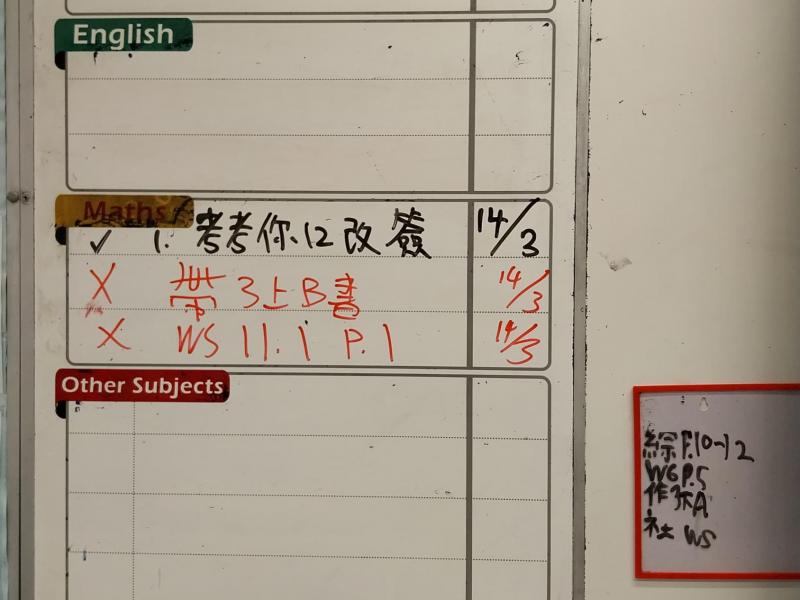 English
Maths
✓ 1. 考考你12改簽 14/3
X 帶3上B書 14/3
X WS 11.1 P.1 14/3
Other Subjects
綜P.10-12
W6P.5
作
社 WS